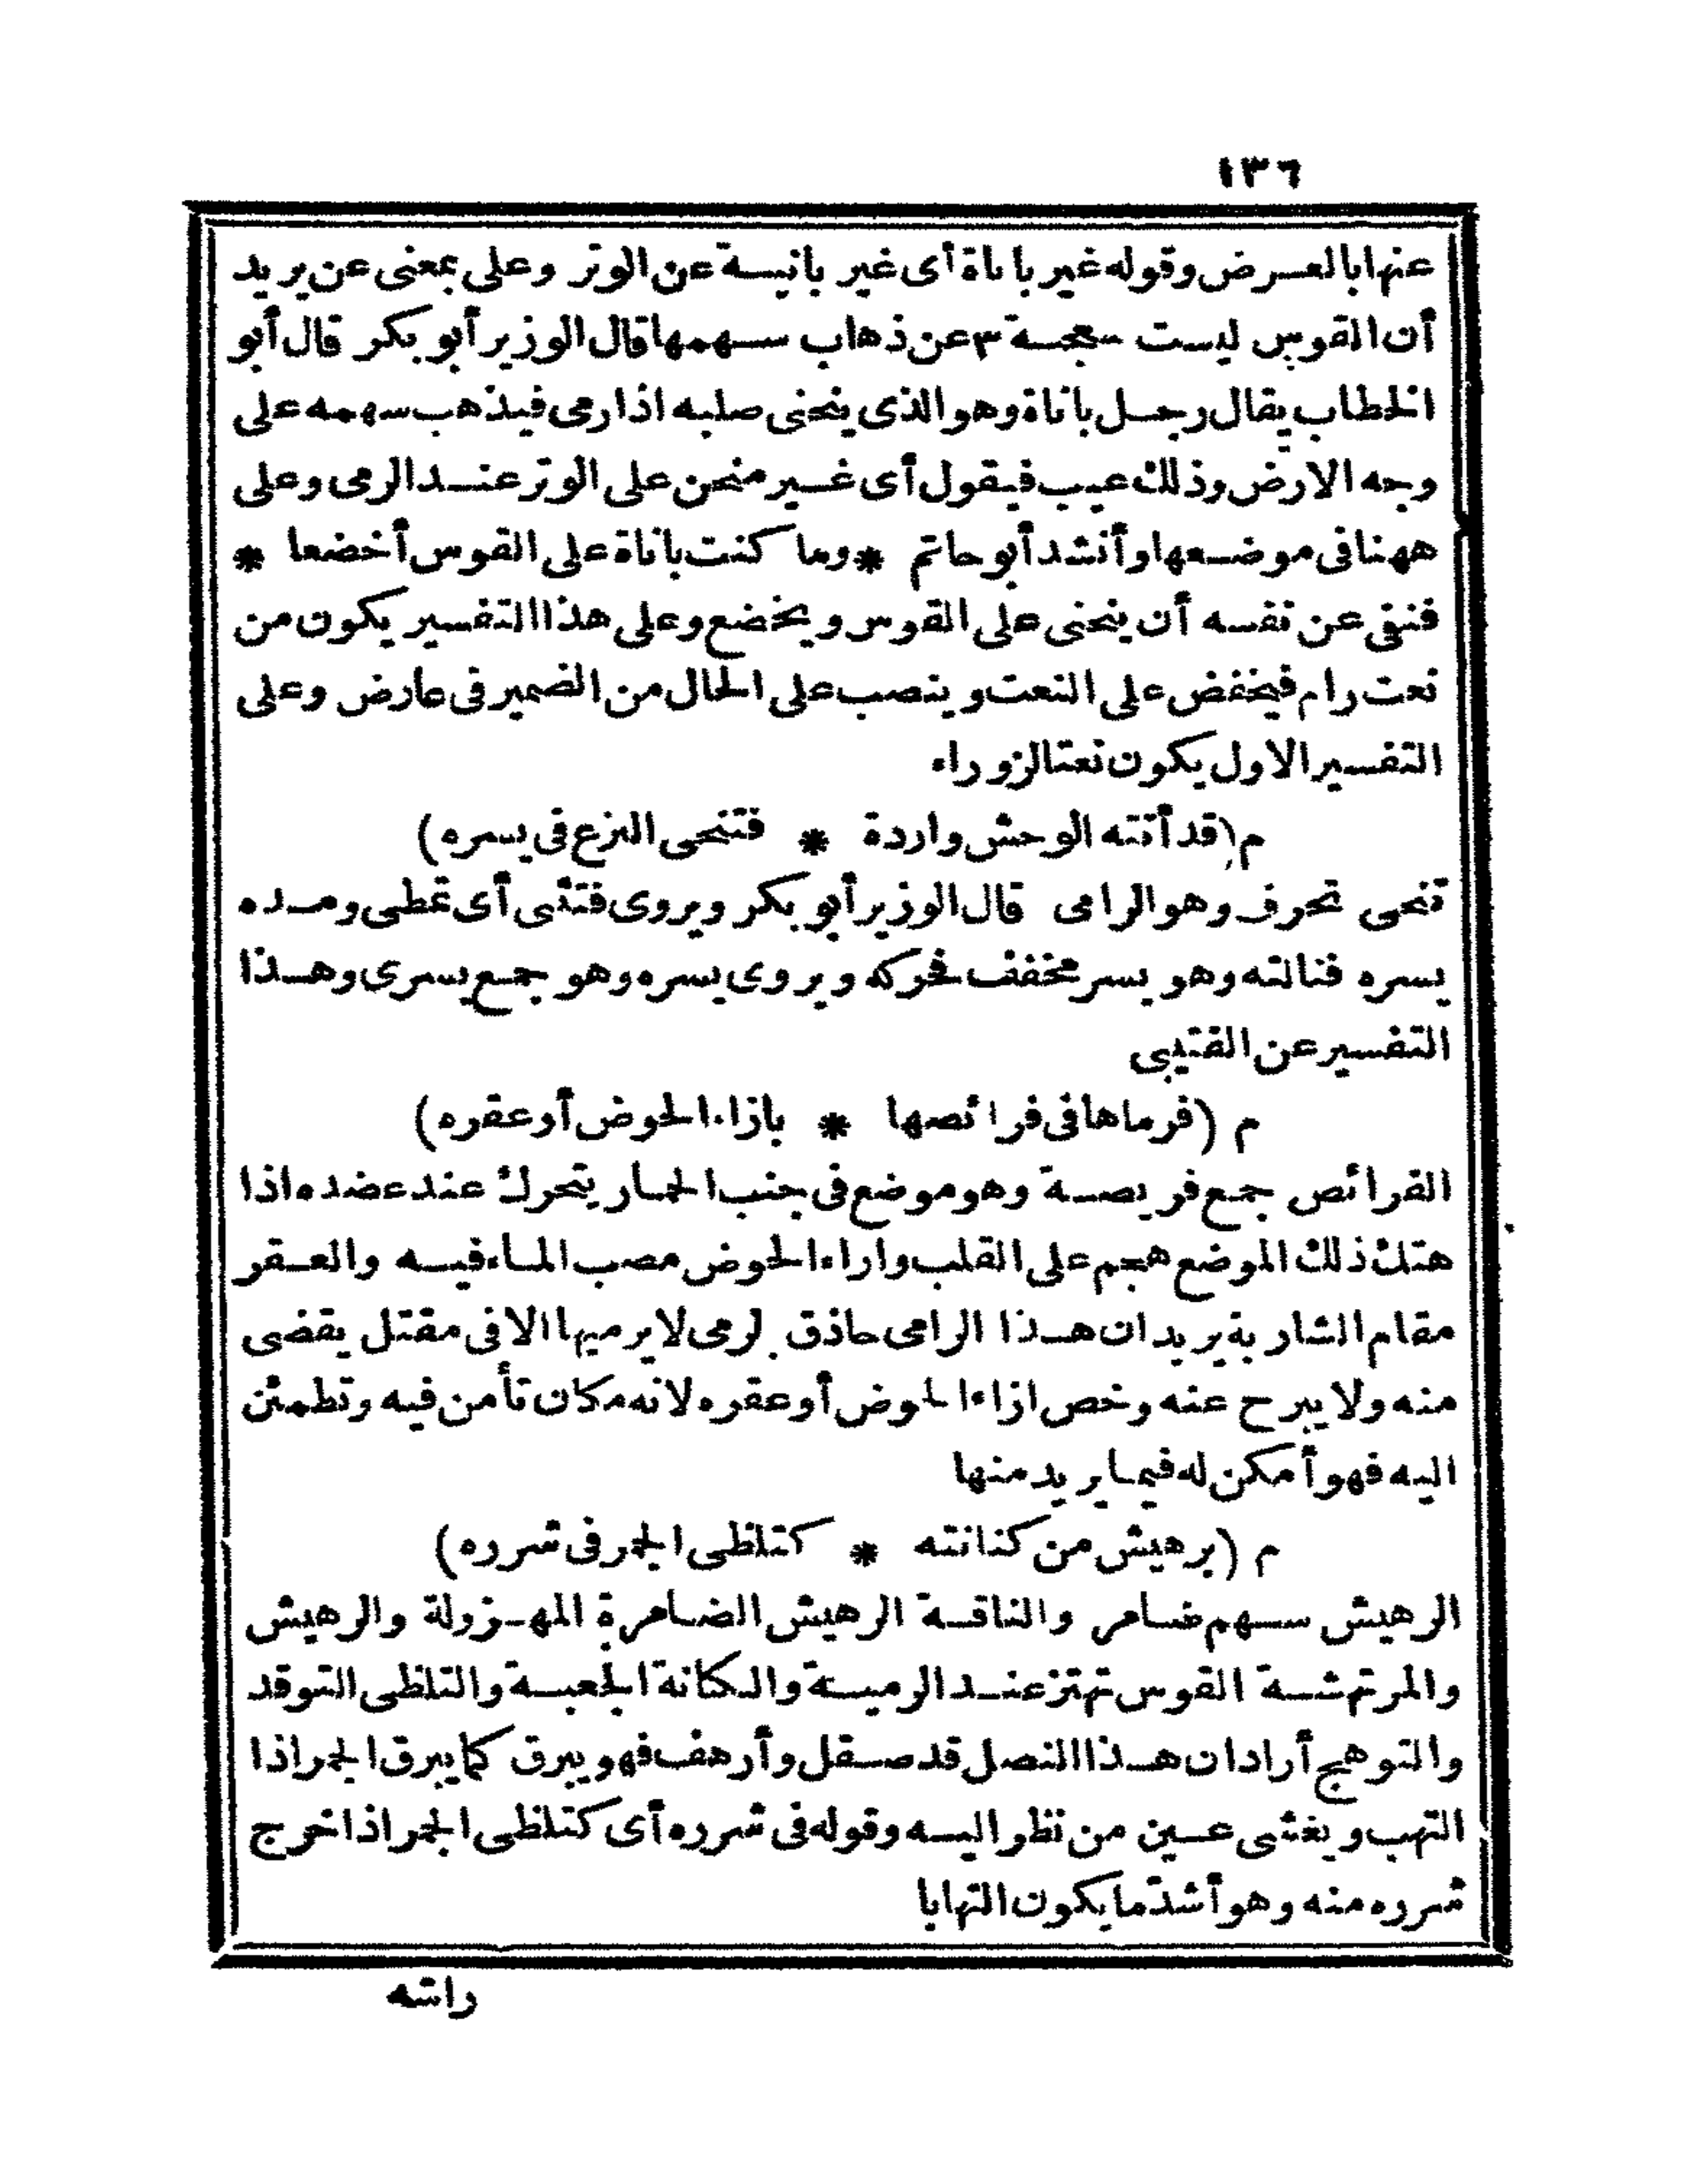 ١٣٦
عنها بالعرض وقوله غير باناة أى غير بانية عن الوتر وعلى بمعنى عن يريد
أن القوس ليست عن ذهاب سهمها قال الوزير أبو بكر قال أبو
الخطاب يقال رجل باناة وهو الذى ينحنى صلبه اذا رمى فيذهب سهمه على
وجه الارض وذلك عيب فيقول أى غير منحن على الوتر عند الرمى وعلى
ههنا فى موضعها وأنشد أبو حاتم * وما كنت باناة على القوس أخضعا *
فنفى عن نفسه أن ينحنى على القوس ويخضع وعلى هذا التفسير يكون من
نعت رام فيخفض على النعت وينصب على الحال من الضمير فى عارض وعلى
التفسير الاول يكون نعتا لزوراء
م (قد أتته الوحش واردة * فتنحى النزع فى يسره)
تنحى تحرف وهو الرامى قال الوزير أبو بكر ويروى فتثنى أى تمطى ومده
يسره قنالته وهو يسر مخفف فحركه ويروى يسره وهو جمع يسرى وهذا
التفسير عن القتيبى
م (فرماها فى فرائصها * بازاء الحوض أو عقره)
الفرائص جمع فريصة وهو موضع فى جنب الحمار يتحرك عند عضده اذا
هتك ذلك الموضع هجم على القلب وازاء الحوض مصب الماء فيه والعقر
مقام الشاربة يريد ان هذا الرامى حاذق لرمى لا يرميها الا فى مقتل يقضى
منه ولا يبرح عنه وخص ازاء الحوض أو عقره لانه مكان تأمن فيه وتطمئن
اليه فهو أمكن له فيما يريد منها
م (برهيش من كنانته * كتلظى الجمر فى شرره)
الرهيش سهم ضامر والناقة الرهيش الضامرة المهزولة والرهيش
والمرتهشة القوس تهتز عند الرمية والكنانة الجعبة والتلظى التوقد
والتوهج أراد ان هذا النصل قد صقل وأرهف فهو يبرق كما يبرق الجمر اذا
التهب ويغشى عين من نظر اليه وقوله فى شرره أى كتلظى الجمر اذا خرج
شرره منه وهو أشد ما يكون التهابا
راشه